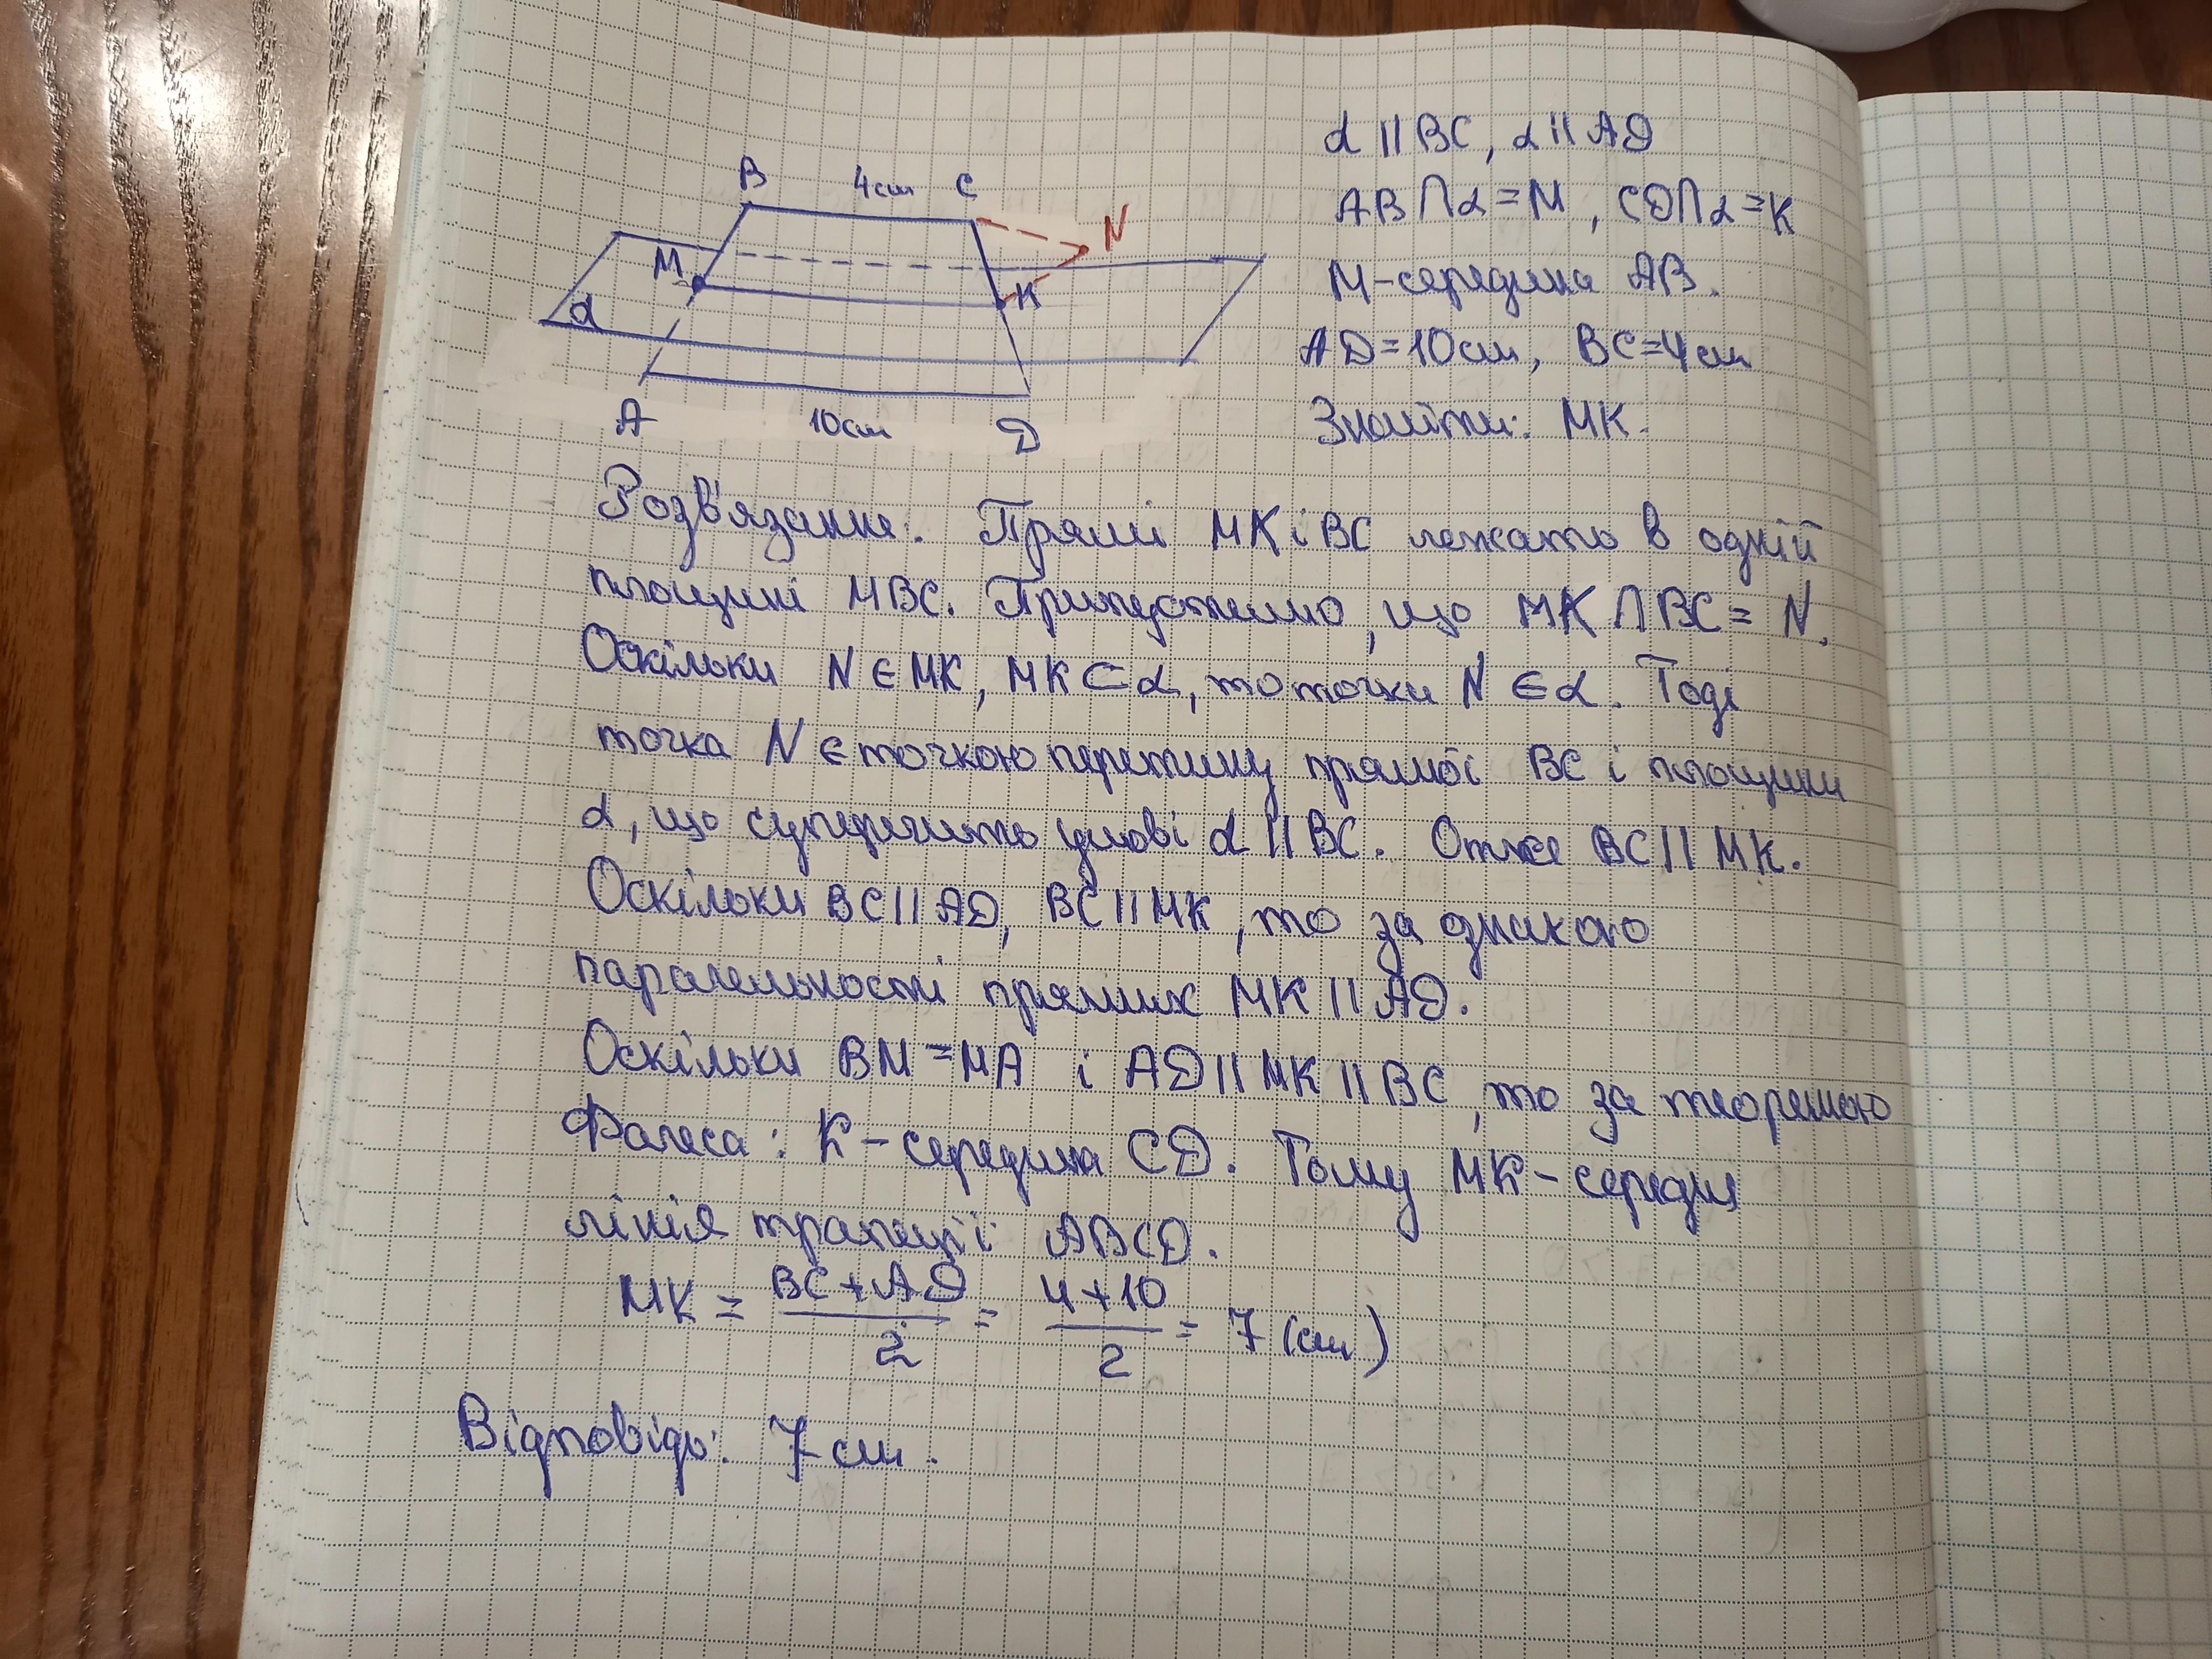 α || BC, α || AD
AB ∩ α = M, CD ∩ α = K
M - середина AB.
AD = 10 см, BC = 4 см
Знайти: MK.
B 4 см C
N
M
K
α
A 10 см D
Розв'язання: Прямі MK і BC лежать в одній
площині MBC. Припустимо, що MK ∩ BC = N.
Оскільки N ∈ MK, MK ⊂ α, то точки N ∈ α. Тоді
точка N є точкою перетину прямої BC і площини
α, що суперечить умові α || BC. Отже BC || MK.
Оскільки BC || AD, BC || MK, то за ознакою
паралельності прямих MK || AD.
Оскільки BM = MA і AD || MK || BC, то за теоремою
Фалеса: K - середина CD. Тому MK - середня
лінія трапеції ABCD.
MK = (BC + AD)/2 = (4 + 10)/2 = 7 (см)
Відповідь: 7 см.